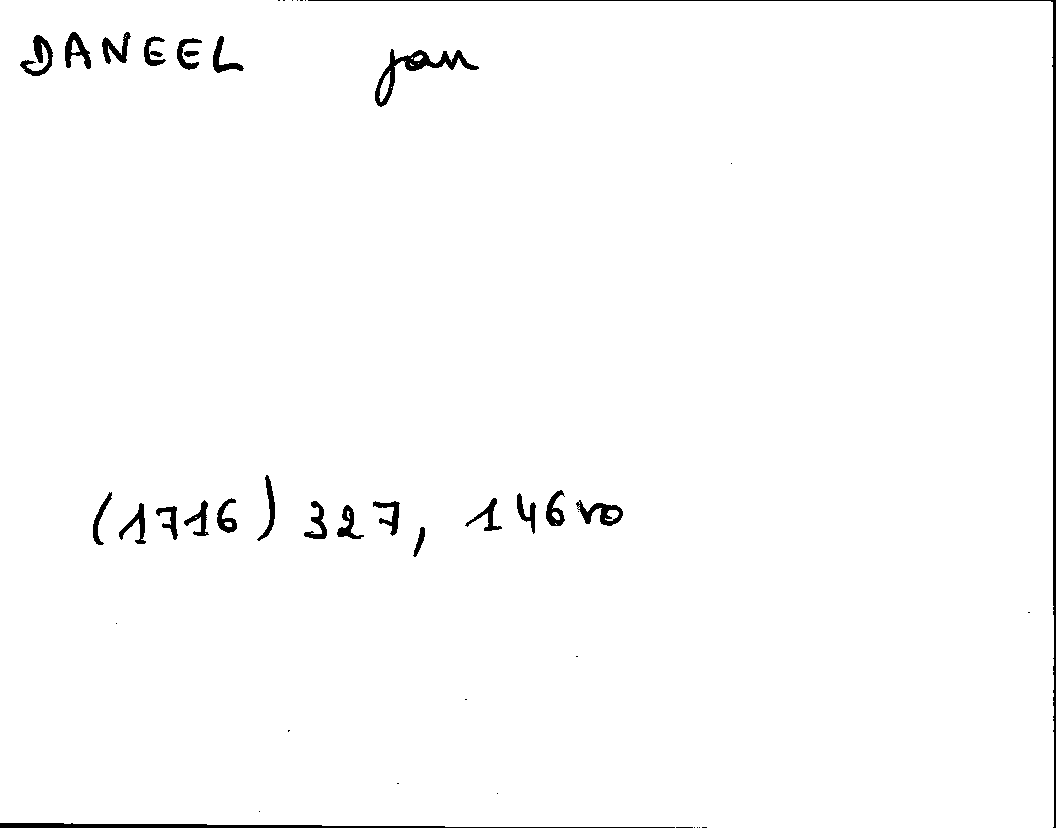 DANEEL jan
(1716) 327, 146ro